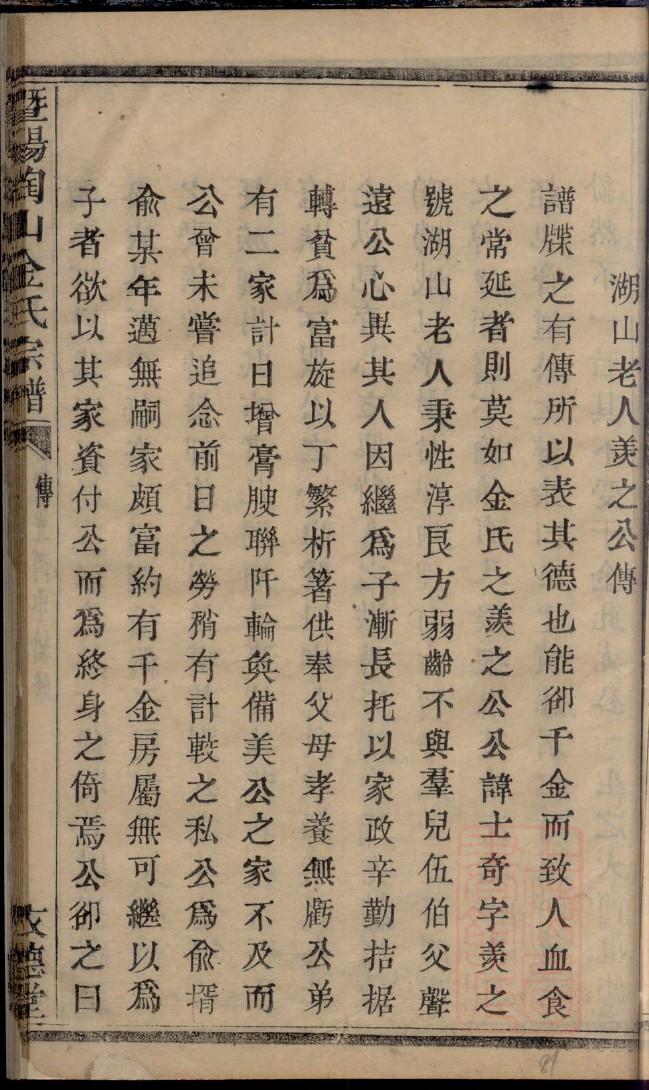 湖山老人羨之公傳
譜牒之有傳所以表其德也能卻千金而致人血食
之常延者則莫如金氏之羨之公公諱士奇字羨之
號湖山老人秉性淳良方弱齡不與羣兒伍伯父聲
遠公心異其人因繼爲子漸長托以家政辛勤拮据
轉貧爲富旋以丁繁析箸供奉父母孝養無虧公弟
有二家計日增膏腴聯阡輪奐備美公之家不及而
公曾未嘗追念前日之勞稍有計較之私公爲俞壻
俞某年邁無嗣家頗富約有千金房屬無可繼以爲
子者欲以其家資付公而爲終身之倚焉公卻之曰
暨陽陶山金氏宗譜
傳
文德堂